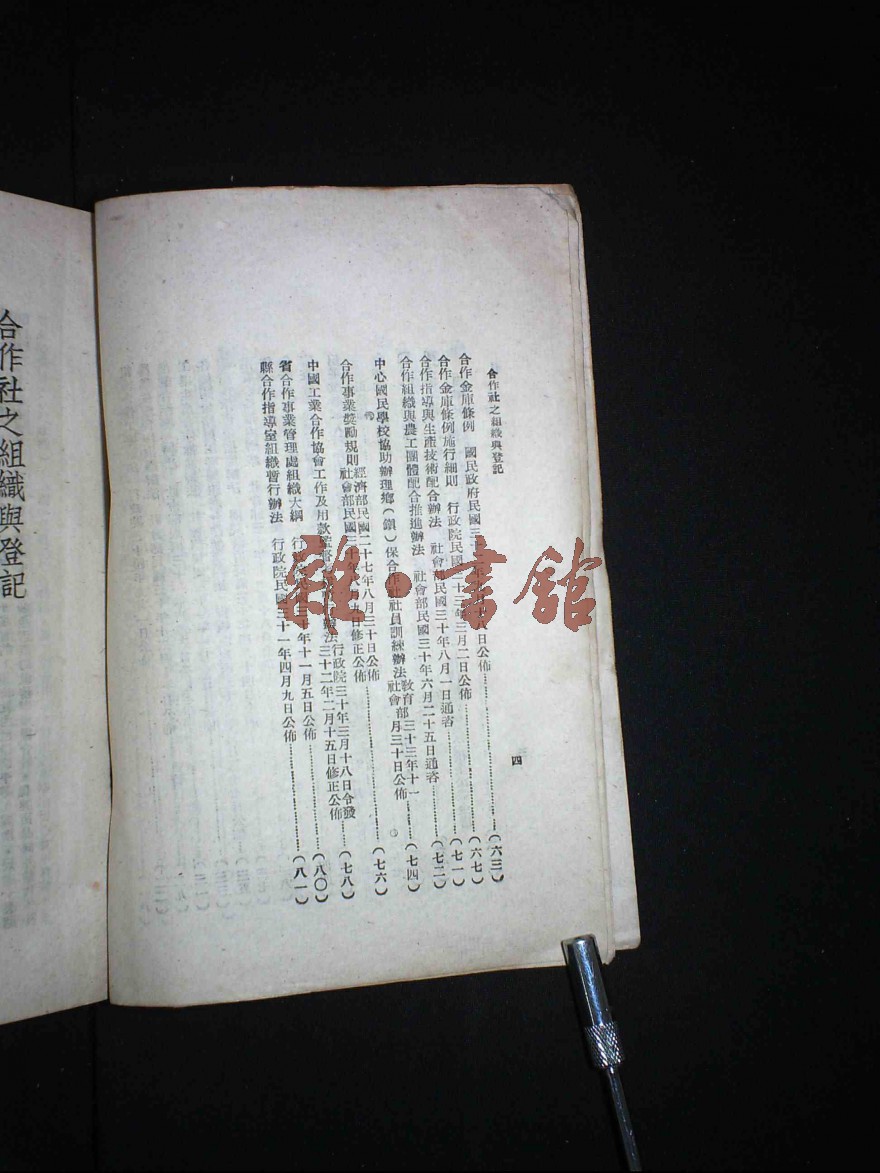 合作社之組織與登記
四
合作金庫條例 國民政府民國三十 八日公佈………(六三)
合作金庫條例施行細則 行政院民國三十三年三月二日公佈………(六七)
合作指導與生產技術配合辦法 社會部民國三十年八月一日通咨………(七一)
合作組織與農工團體配合推進辦法 社會部民國三十年六月二十五日通咨………(七二)
中心國民學校協助辦理鄉(鎮)保合作社社員訓練辦法 教育部 社會部 三十三年十一月三十日公佈………(七四)
合作事業獎勵規則 經濟部民國二十七年八月三十日公佈 社會部民國三十年 日修正公佈………(七六)
中國工業合作協會工作及用款監督 辦法 行政院三十年三月十八日令發 三十二年二月十五日修正公佈………(七八)
省合作事業管理處組織大綱 行 十年十一月五日公佈………(八〇)
縣合作指導室組織暫行辦法 行政院民國三十一年四月九日公佈………(八一)
合作社之組織與登記
雜·書館